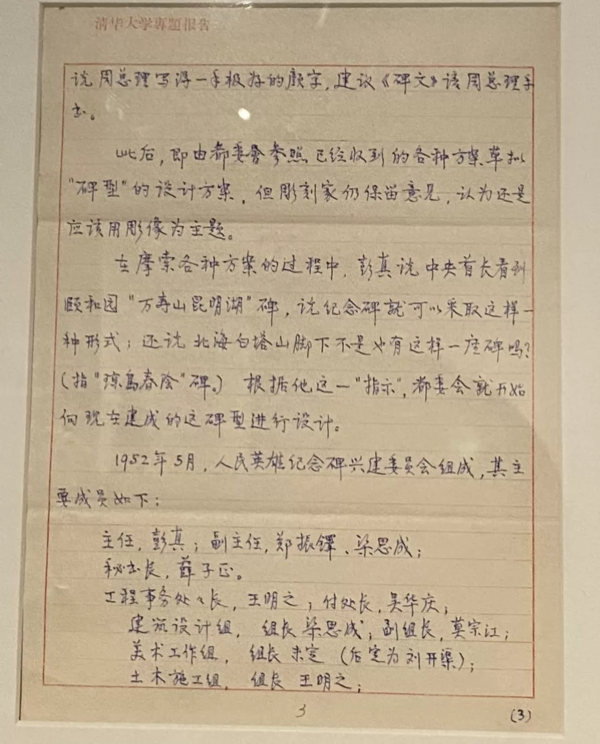 清华大学專題报告
说周总理写得一手极好的颜字,建议《碑文》该周总理手
书。
此后,即由都委會参照已经收到的各种方案草拟
“碑型”的设计方案,但彫刻家仍保留意见,认为还是
应该用彫像为主题。
在摩索各种方案的过程中,彭真说中央首长看到
颐和园“万寿山昆明湖”碑,说纪念碑就可以采取这样一
种形式;还说北海白塔山脚下不是也有这样一座碑吗?
(指“琼岛春阴”碑。) 根据他这一“指示”,都委会就开始
向现在建成的这碑型进行设计。
1952年5月,人民英雄纪念碑兴建委员会组成,其主
要成员如下:
主任,彭真;副主任,郑振铎、梁思成;
秘书长,薛子正。
工程事务处处长,王明之;付处长,吴华庆;
建筑设计组,组长梁思成,副组长,莫宗江;
美术工作组,组长未定(后定为刘开渠);
土木施工组,组长王明之;
3
(3)